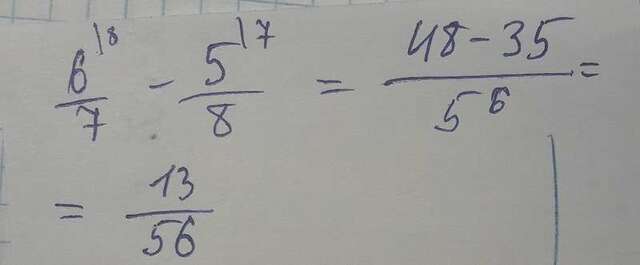 6^{\8}/7 - 5^{\7}/8 = (48-35)/56 =
= 13/56